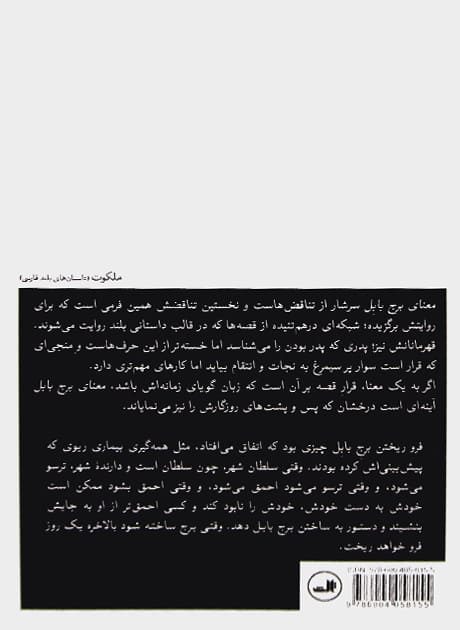 ملکوت (داستان‌های بلند فارسی)
معنای برج بابل سرشار از تناقض‌هاست و نخستین تناقضش همین فرمی است که برای
روایتش برگزیده؛ شبکه‌ای درهم‌تنیده از قصه‌ها که در قالب داستانی بلند روایت می‌شوند.
قهرمانانش نیز؛ پدری که پدر بودن را می‌شناسد اما خسته‌تر از این حرف‌هاست و منجی‌ای که
قرار است سوار پر سیمرغ به نجات و انتقام بیاید اما کارهای مهم‌تری دارد.
اگر به یک معنا، قرار قصه بر آن است که زبان گویای زمانه‌اش باشد، معنای برج بابل
آینه‌ای است درخشان که پس و پشت‌های روزگارش را نیز می‌نمایاند.
فرو ریختن برج بابل چیزی بود که اتفاق می‌افتاد، مثل همه‌گیری بیماری ریوی که
پیش‌بینی‌اش کرده بودند. وقتی سلطان شهر، چون سلطان است و دارندهٔ شهر، ترسو
می‌شود، و وقتی ترسو می‌شود احمق می‌شود، و وقتی احمق بشود ممکن است
خودش به دست خودش، خودش را نابود کند و کسی احمق‌تر از او به جایش
بنشیند و دستور به ساختن برج بابل دهد. وقتی برج ساخته شود بالاخره یک روز
فرو خواهد ریخت.
ثالث
ISBN: 978-600-405-815-5
9 786004 058155